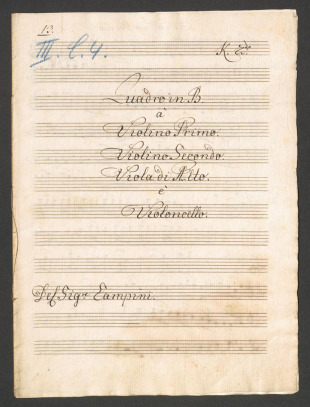 13.
III. C. 4.
Quadro in B.
à
Violino Primo.
Violino Secondo.
Viola di Alto.
è
Violoncello.
Del Sigr Campini.